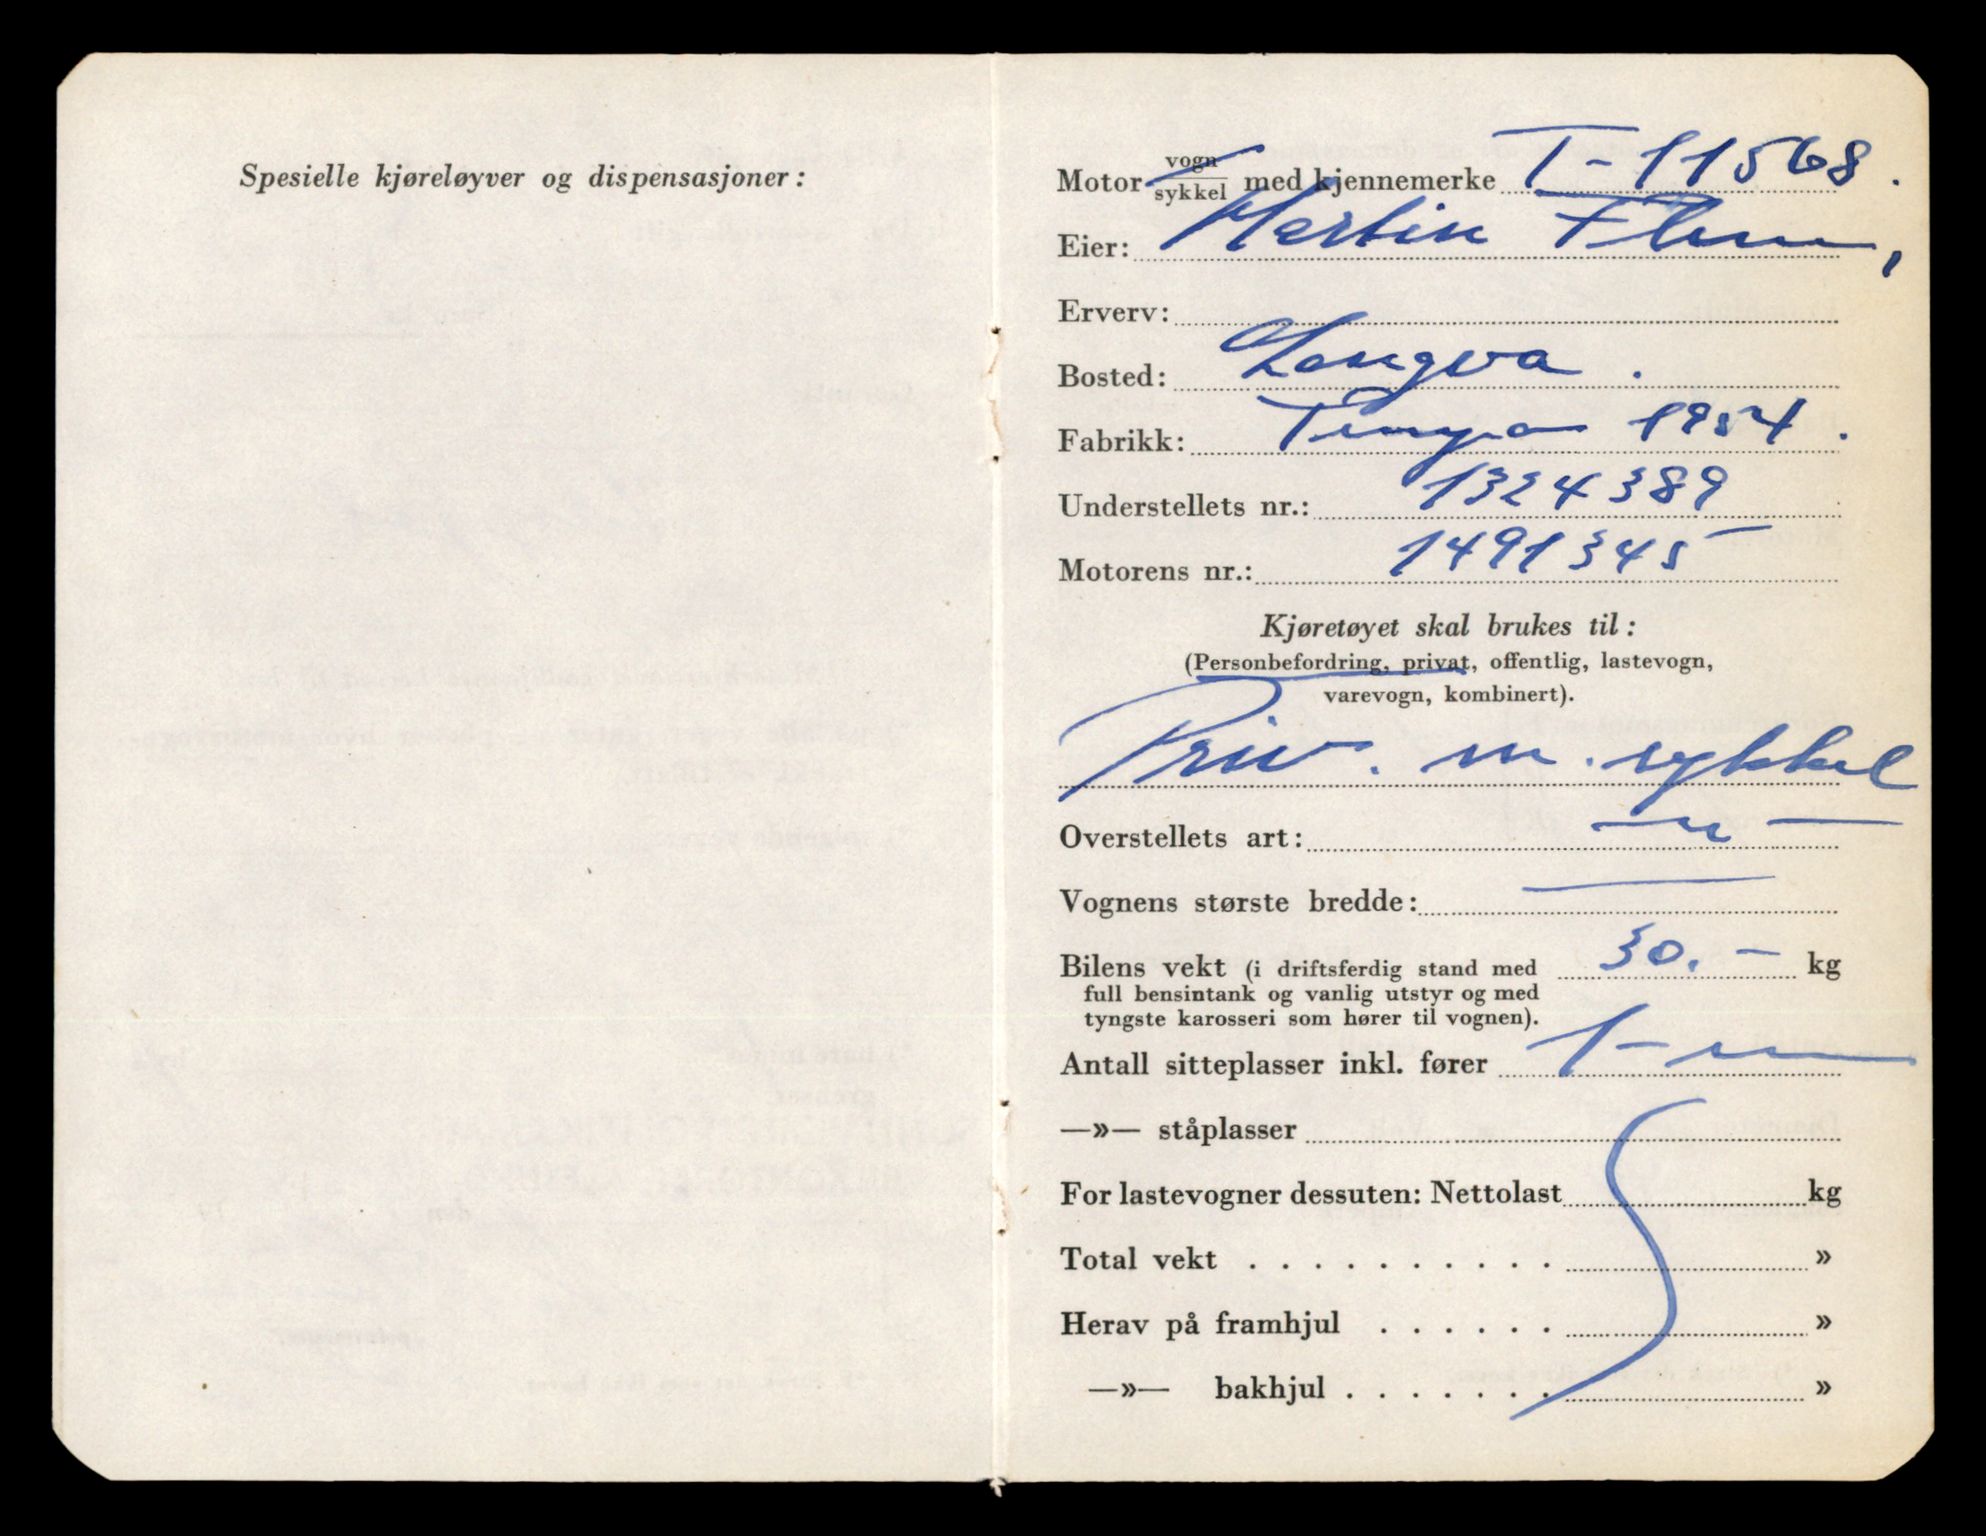 Spesielle kjøreløyver og dispensasjoner:
Motor vogn/sykkel med kjennemerke T-11568.
Eier: Martin Flem,
Erverv:
Bosted: Longva.
Fabrikk: Tempo 1954.
Understellets nr.: 1324389
Motorens nr.: 1491345
Kjøretøyet skal brukes til:
(Personbefordring, privat, offentlig, lastevogn,
varevogn, kombinert).
Priv. m. sykkel
Overstellets art: — " —
Vognens største bredde: —
Bilens vekt (i driftsferdig stand med 30.- kg
full bensintank og vanlig utstyr og med
tyngste karosseri som hører til vognen).
Antall sitteplasser inkl. fører 1 -
—»— ståplasser
For lastevogner dessuten: Nettolast kg
Total vekt . . . . . . . . . . »
Herav på framhjul . . . . . . »
—»— bakhjul . . . . . . . »